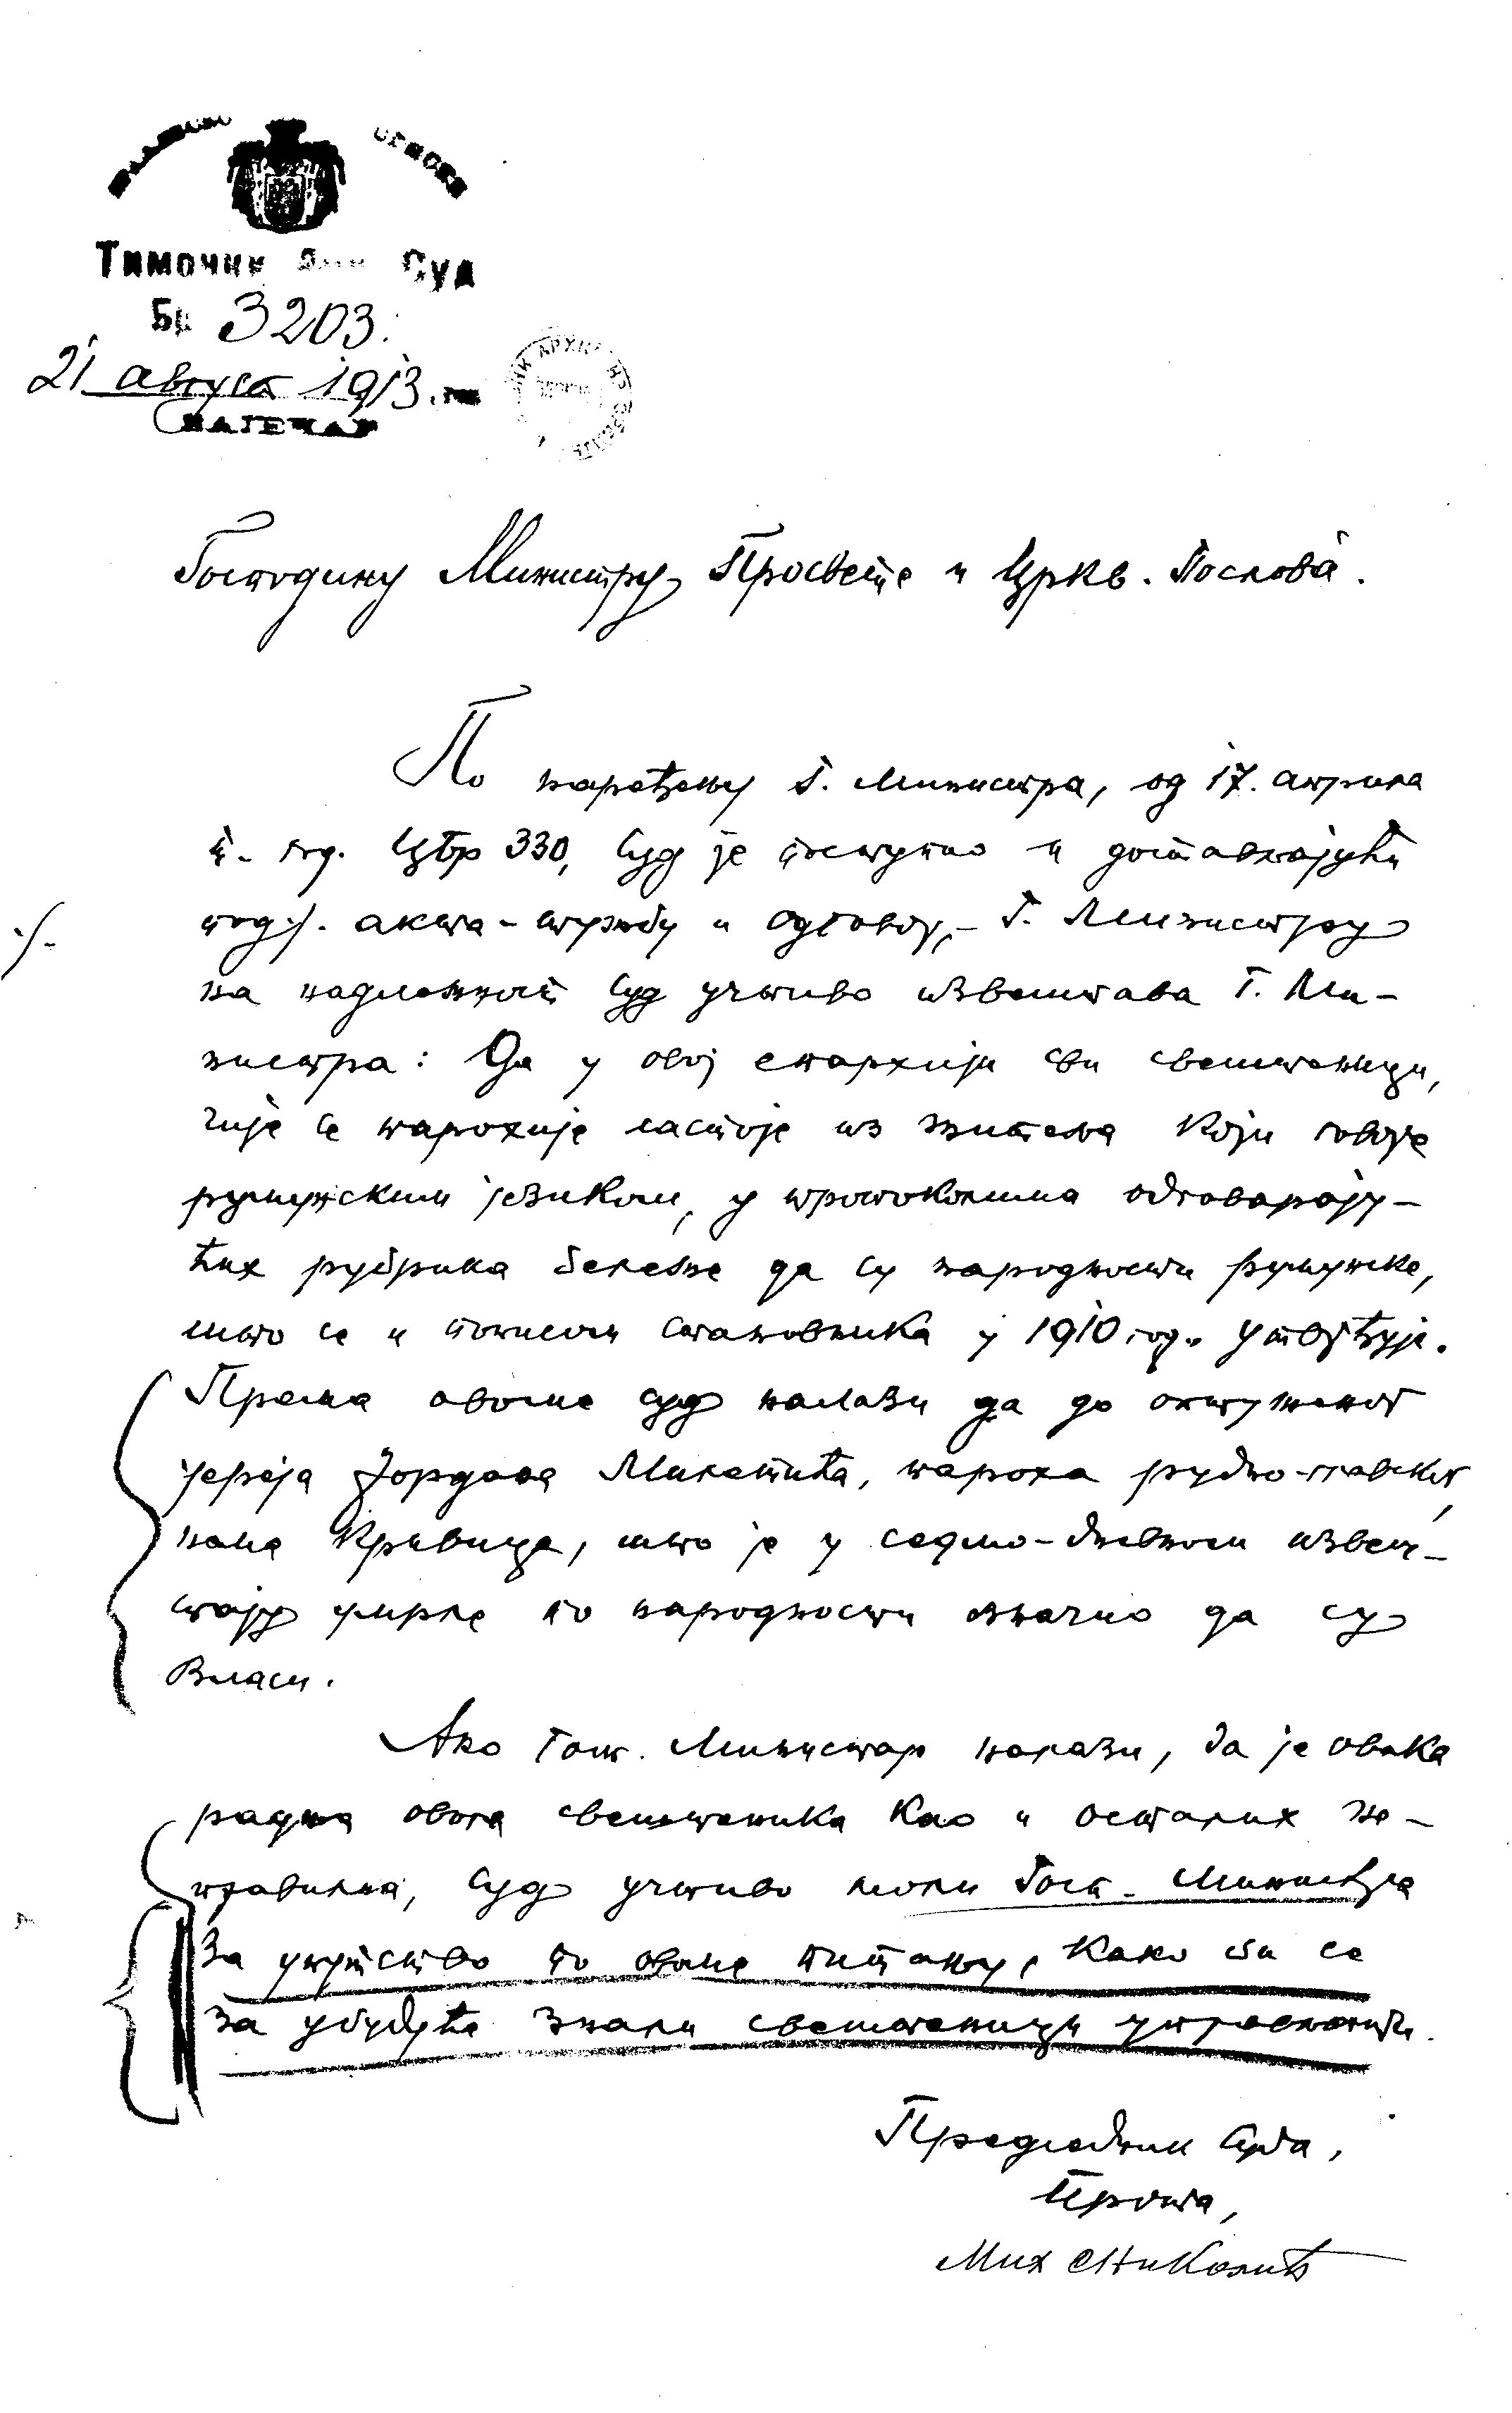 Тимочки Суд
Бр 3203.
21 августа 1913. год
ЗАЈЕЧАР
Господину Министру Просвете и Црkв. Послова.
По наређењу Г. Министра, од 17. априла
т. год. ЦБр 330, Суд је поступио и достављајући
под ·/. акта - тужбу и одговор, - Г. Министру
·/.
на надлежност Суд учтиво извештава Г. Ми-
нистра: Да у овој епархији сви свештеници,
чије се парохије састоје из житеља који говоре
румунским језиком, у протоколима одговарају-
ћих рубрика бележе да су народности румунске,
што се и пописом становника у 1910 год. утврђује.
Према овоме суд налази да до оптуженог
јереја Јордана Милетића, пароха рудно-главског,
нема кривице, што је у седмо-дневном извеш-
тају умрле по народности означио да су
Власи.
Ако Госп. Министар налази, да је овака
радња овога свештеника као и осталих не-
правилна, Суд учтиво моли Госп. Министра
за упутство по овоме питању, како би се
за убудуће знали свештеници управљати.
Председник Суда,
Прота,
Мих Николић